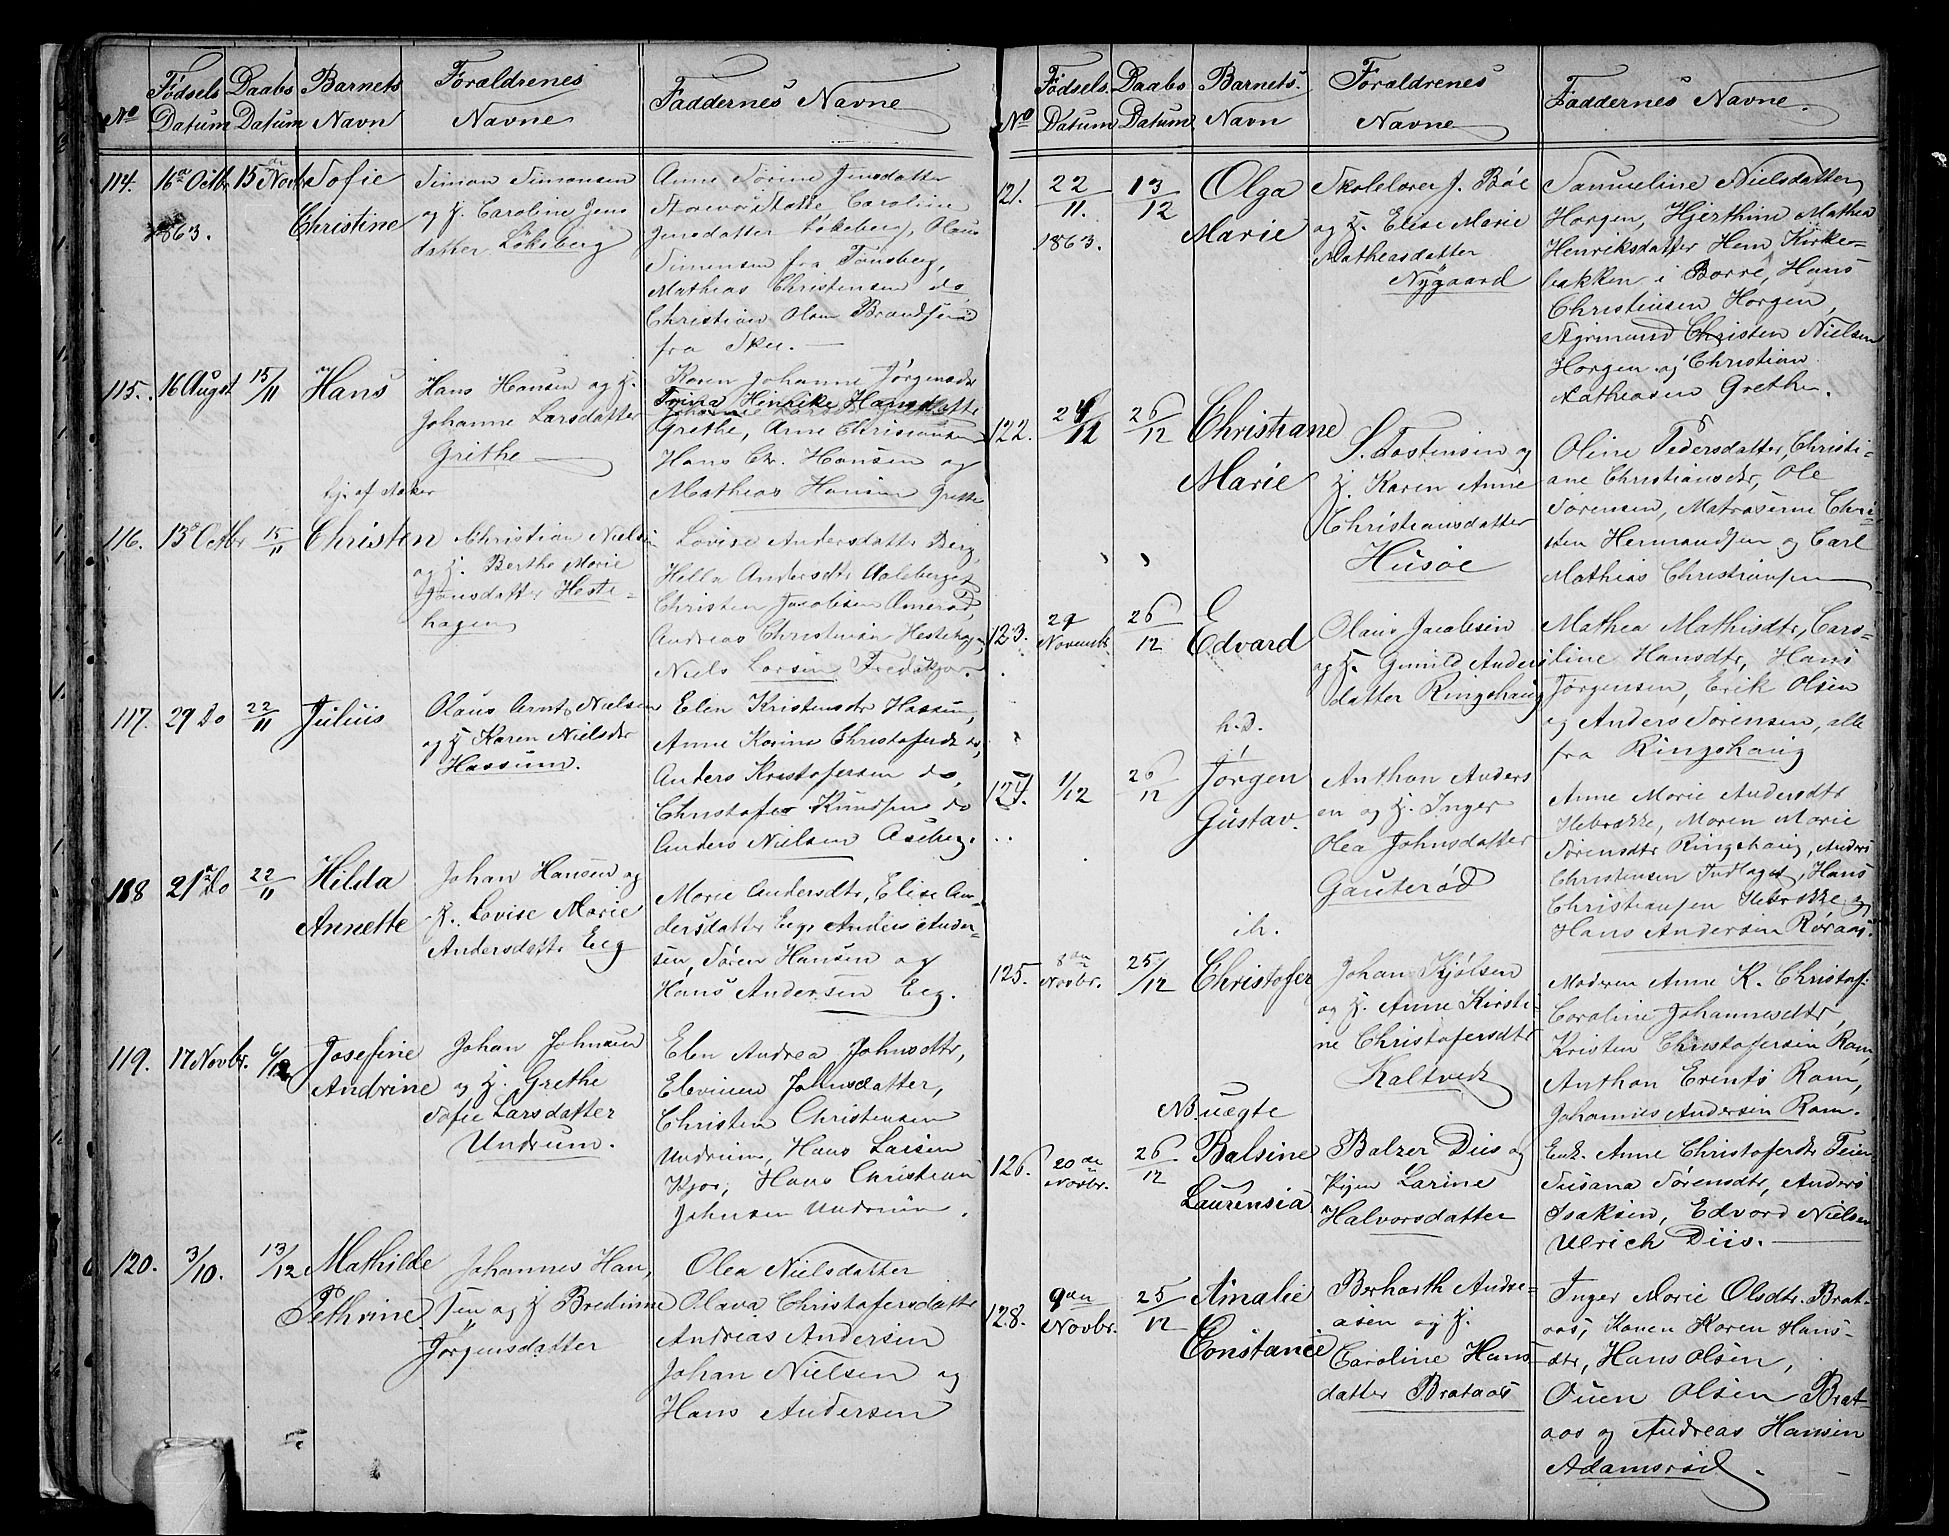 No
Fødsels Datum
Daabs Datum
Barnets Navn
Foraldrenes Navne
Faddernes Navne
114. 16de Octbr 1863. 15de Novbr
Sofie
Christine
Simon Simonsen
og H. Caroline Jens
datter Løkeberg
Anne Sørine Jensdatter
Caroline
Jensdatter Løkeberg, Olaus
Simensen fra Tønsberg,
Mathias Christensen do,
Christian Olsen
fra Skee.
115. 16 Augst 15/11
Hans
Hans Hansen og H.
Johanne Larsdatter
Grethe
Karen Johanne Jørgensdr
Trina Henrike Hansdatter
Grethe, Arne Christiansen
Hans Chr. Hansen og
Mathias Hansen Grethe
tj. af Aaker
116. 13de Octbr 15/11
Christen
Christian Nielsen
og H. Berthe Marie
Jensdatter Heste-
hagen
Lovise Andersdattr Berg,
Hella Andersdtr Aalsberget
Christen Jacobsen Omerød,
Andreas Christensen Hestehagen
Niels Larsen
117. 29 Do 22/11
Julius
Olaus Arnt Nielsen
og H Karen Nielsdr
Hassum.
Elen Kristensdr Hassum,
Anne Karine Christofersdr do,
Anders Kristofersen do,
Christofer Knudsen do
Anders Nielsen Aseberg.
118 21de Do 22/11
Hilda
Annette
Johan Hansen og
H. Lovise Marie
Andersdattr Eeg
Marie Andersdtr, Elise An-
dersdatter Eeg, Anders Ander-
sen, Søren Hansen og
Hans Andersen Eeg.
119. 17 Novbr. 6/12
Josefine
Andrine
Johan Johnsen
og H. Grethe
Sofie Larsdatter
Undrum.
Elen Andrea Johnsdtr,
Elevine Johnsdatter,
Christen Christensen
Undrum, Hans Larsen
Kjær, Hans Christian
Johnsen Undrum.
120. 3/10. 13/12
Mathilde
Pethrine
Johannes Han,
sen og H Bredine
Jørgensdatter
Olea Nielsdatter
Olava Christofersdatter
Andreas Andersen
Johan Nielsen og
Hans Andersen
No
Fødsels. Datum
Daabs Datum
Barnets. Navn
Foraldrenes Navne
Faddernes Navne.
121. 22/11. 1863. 13/12
Olga
Marie
Skolelærer J. Bøe
og H. Elise Marie
Matheasdatter
Nygaard
Samueline Nielsdatter
Horgen, Mathea
Henriksdatter Hem Kirke-
bakken i Borre, Hans
Christensen Horgen,
Christen Nielsen
Horgen og Christian
Mathiasen Grethe.
122. 24/11 26/12
Christiane
Marie
S. Tostensen og
H. Karen Anne
Christiansdatter
Husøe
Oline Pedersdatter, Christi-
ane Christiansdtr, Ole
Sørensen, Matroserne Chri-
sten Hermandsen og Carl
Mathias Christiansen
123. 29 Novembr 26/12
Edvard
Olaus Jacobsen
og H. Gunild Anders
datter Ringshaug
Mathea Mathisdtr, Caro-
line Hansdtr, Hans
Jørgensen, Erik Olsen
og Anders Sørensen, alle
fra Ringshaug
h.d.
124. 1/12 26/12
Jørgen
Gustav.
Anthon Anders
en og H. Inger
Olea Johnsdatter
Gauterød
Anne Marie Andersdtr
Hebrække, Maren Marie
Sørensdtr Ringshaug, Anders
Christensen Indlaget, Hans
Christiansen Hebrække og
Hans Andersen Røraas.
i h.
125. 8de Novbr. 25/12
Christofer
Johan Kjølsen
og H. Anne Kirsti-
ne Christofersdtr
Kaltved
Moderen Anne K. Christof:
Caroline Johannesdtr,
Kristen Christofersen Ram,
Anthon Erents Ram,
Johannes Andersen Ram.
NB uægte
126. 20de Novbr. 26/12
Balsine
Laurensia
Balzer Diis og
Pigen Larine
Halvorsdatter
Enk. Anne Christofersdtr Feien
Susana Sørensdtr, Anders
Isaksen, Edvard Nielsen
Ulrich Diis.
128. 9de Novbr. 25/12
Amalie
Constance
Berharth Andre-
asen og H.
Caroline Hans
datter Brataas
Inger Marie Olsdtr. Brat-
aas, Konen Karen Hans-
dtr, Hans Olsen,
Ouen Olsen Brat-
aas og Andreas Hansen
Adamsrød.